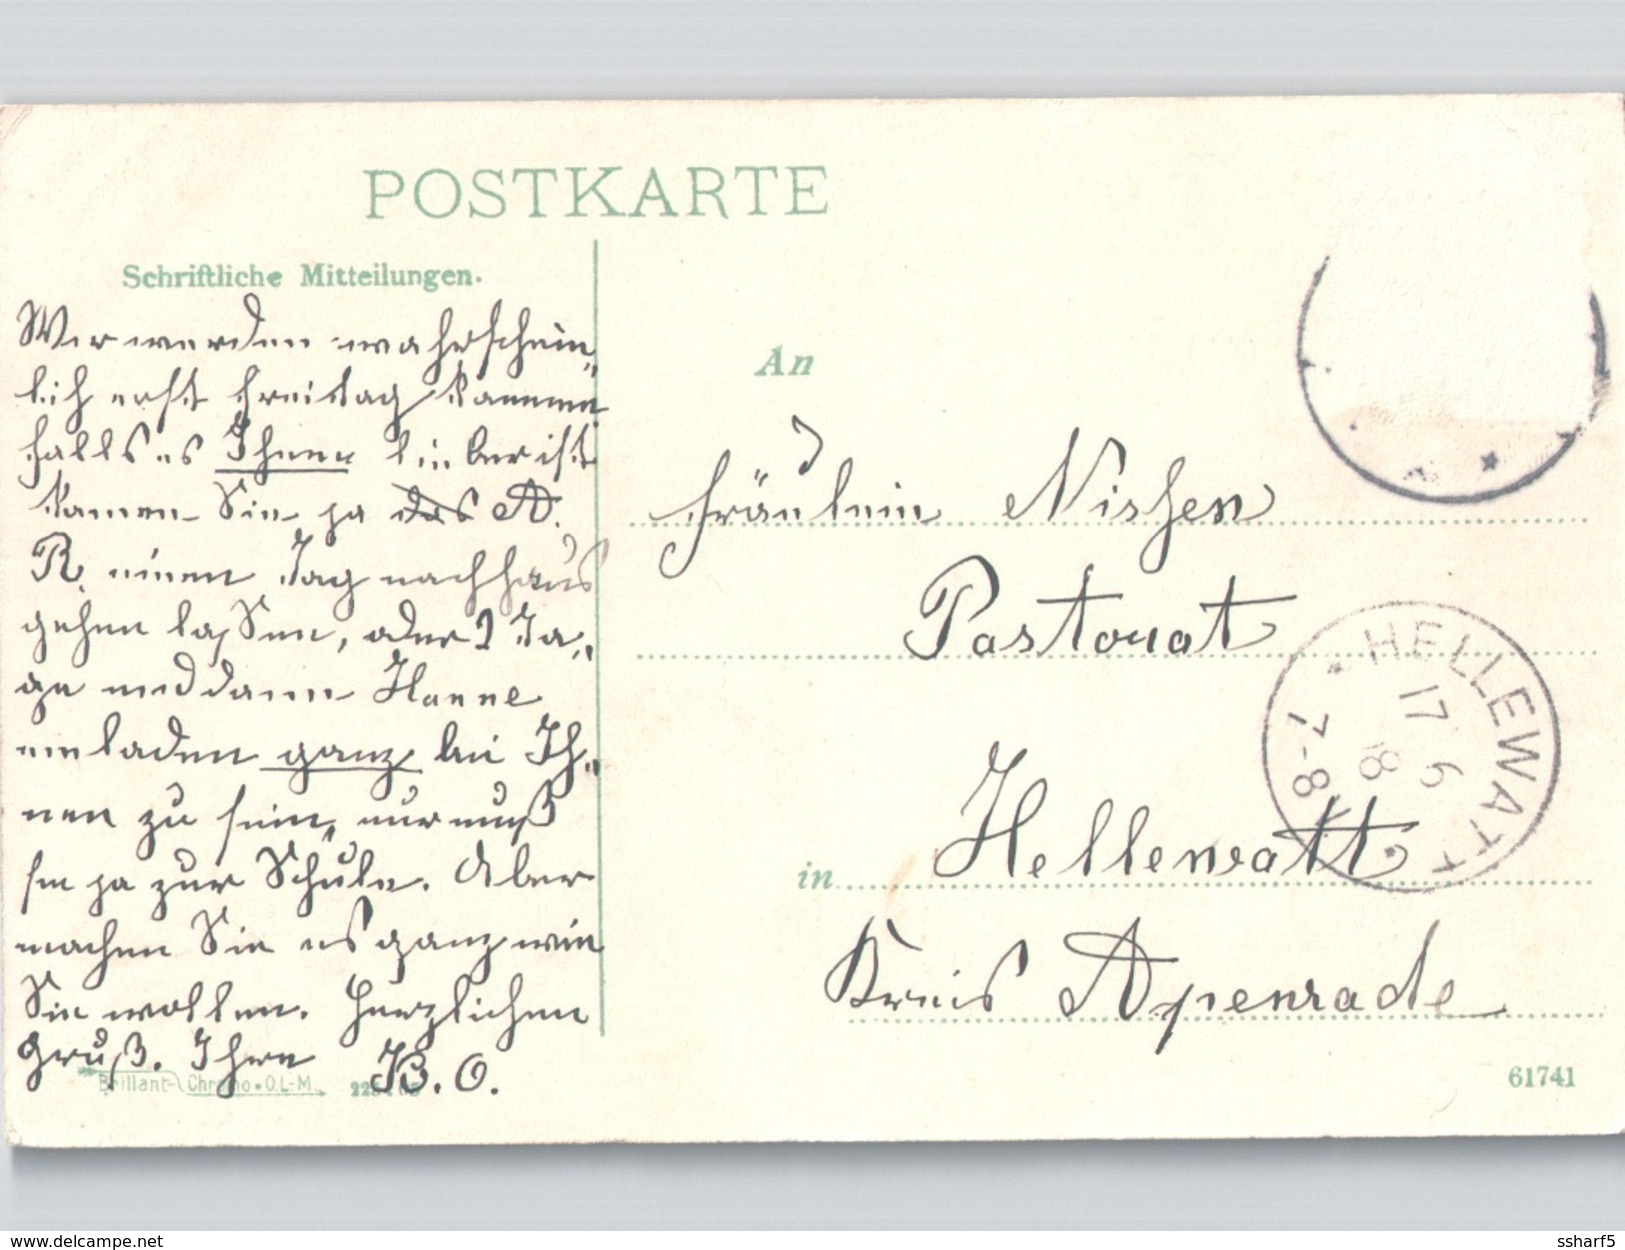 POSTKARTE
Schriftliche Mitteilungen.
Wir werden wahrschein-
lich erst Freitag kommen
falls es Ihnen lieber ist
können Sie ja das A.
R. einen Tag nachhaus
gehen lassen, oder 2 Ta-
ge und dann Hanne
einladen ganz bei Ih-
nen zu sein, nur muß
sie ja zur Schule. Aber
machen Sie es ganz wie
Sie wollen. Herzlichen
Gruß. Ihre B. O.
Brillant-Chromo • O.L-M.
An
Fräulein Nissen
Pastorat
in Hellewatt
Kreis Apenrade
HELLEWATT
17 6
08
7-8
61741
www.delcampe.net
ssharf5